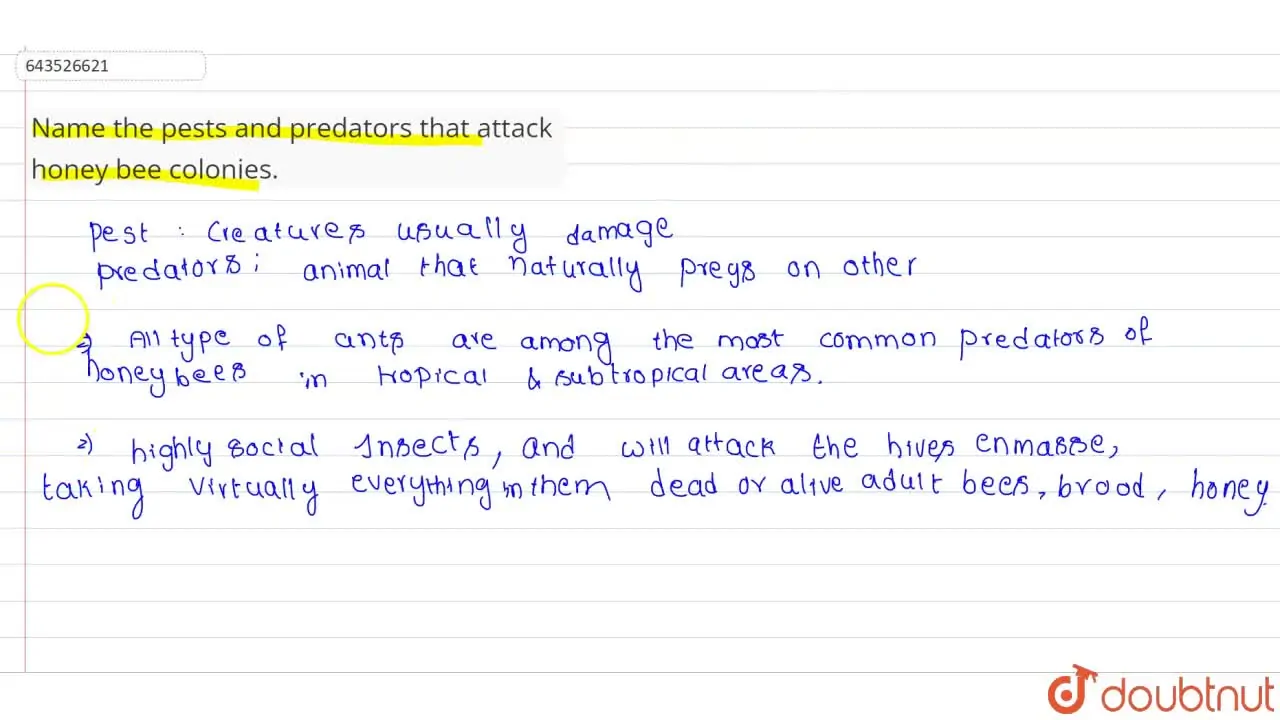 643526621
Name the pests and predators that attack
honey bee colonies.
Pest : Creatures usually damage
predators; animal that naturally preys on other
2) All type of ants are among the most common predators of
honeybees in tropical & subtropical areas.
2) highly social Insects, and will attack the hives enmasse,
taking virtually everything in them dead or alive adult bees, brood, honey.
doubtnut